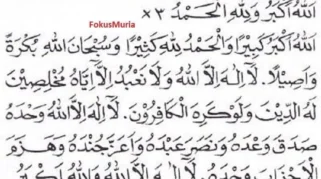 اَللهُ اَكْبَرُ وَلِلّٰهِ الْحَمْدُ ×٣
FokusMuria
اَللهُ اَكْبَرُ كَبِيْرًا وَالْحَمْدُ لِلّٰهِ كَثِيْرًا وَسُبْحَانَ اللهِ بُكْرَةً
وَاَصِيْلًا. لَا اِلٰهَ اِلَّا اللهُ وَلَا نَعْبُدُ اِلَّا اِيَّاهُ مُخْلِصِيْنَ
لَهُ الدِّيْنَ وَلَوْ كَرِهَ الْكَافِرُوْنَ. لَا اِلٰهَ اِلَّا اللهُ وَحْدَهُ
صَدَقَ وَعْدَهُ وَنَصَرَ عَبْدَهُ وَاَعَزَّ جُنْدَهُ وَهَزَمَ
الْاَحْزَابَ وَحْدَهُ. لَا اِلٰهَ اِلَّا اللهُ وَاللهُ اَكْبَرُ